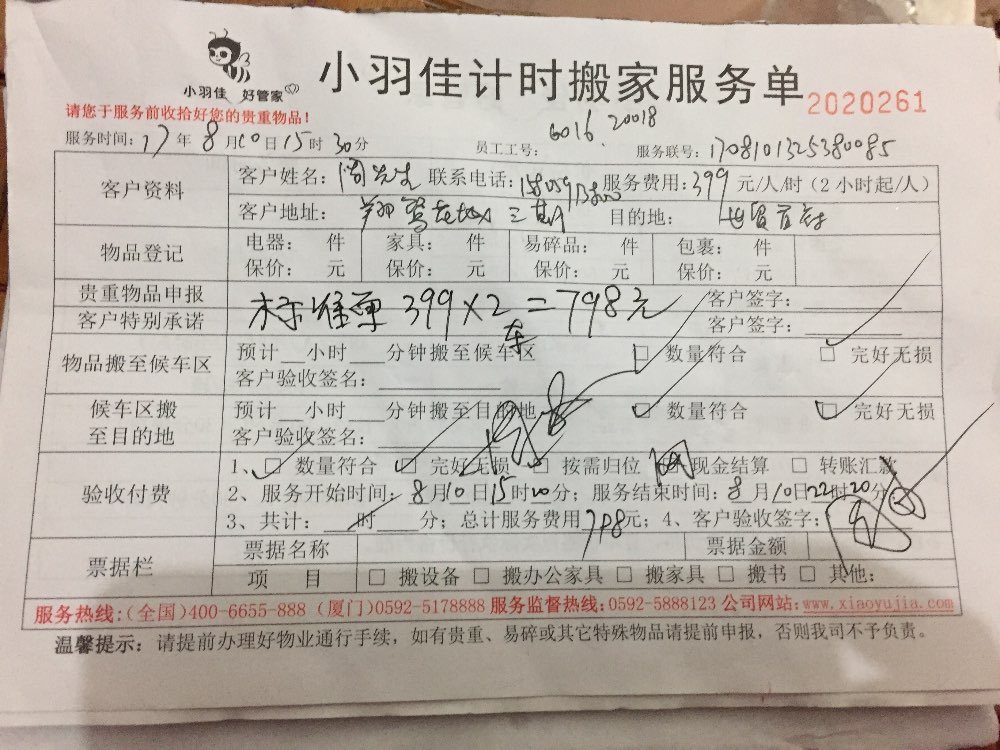 小羽佳 好管家
小羽佳计时搬家服务单
2020261
请您于服务前收拾好您的贵重物品!
服务时间: 17年8月10日15时30分 员工工号: 6016. 20018 服务联号: 1708101325380085
客户资料
客户姓名: 周先生 联系电话: 服务费用: 399 元/人/时(2小时起/人)
客户地址: 翔鹭花城 三期 目的地: 世贸
物品登记
电器: 件 家具: 件 易碎品: 件 包裹: 件
保价: 元 保价: 元 保价: 元 保价: 元
贵重物品申报 客户签字:
标准单 399×2=798元
车
客户特别承诺 客户签字:
物品搬至候车区
预计__小时___分钟搬至候车区 □ 数量符合 □ 完好无损
客户验收签名:
候车区搬
至目的地
预计__小时___分钟搬至目的地 □ 数量符合 □ 完好无损
客户验收签名:
验收付费
1、□ 数量符合 □ 完好无损 □ 按需归位 现金结算 □ 转账汇款
2、服务开始时间: 8月10日15时20分; 服务结束时间: 8月10日22时20分
3、共计: ___时___分; 总计服务费用798元; 4、客户验收签字:
票据栏
票据名称 票据金额
项 目 □ 搬设备 □ 搬办公家具 □ 搬家具 □ 搬书 □ 其他:
服务热线:(全国)400-6655-888 (厦门)0592-5178888 服务监督热线:0592-5888123 公司网站:www.xiaoyujia.com
温馨提示: 请提前办理好物业通行手续，如有贵重、易碎或其它特殊物品请提前申报，否则我司不予负责。